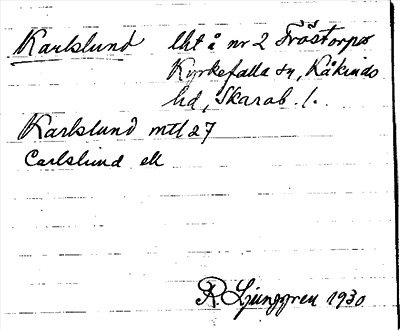 Karlslund lht å nr 2 Fröstorps
Kyrkefalla sn, Kåkinds
hd, Skarab. l.
Karlslund mtl 27
Carlslund ek
R Ljunggren 1930